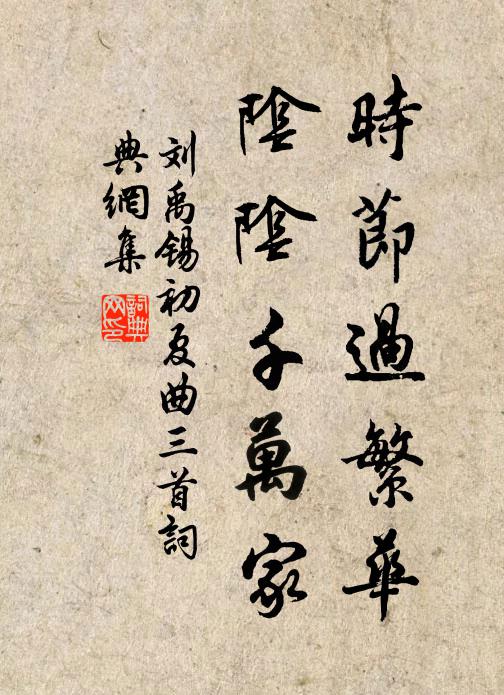 時節過繁華
陰陰千萬家
刘禹锡初夏曲三首詞
典網集
詞典
网印